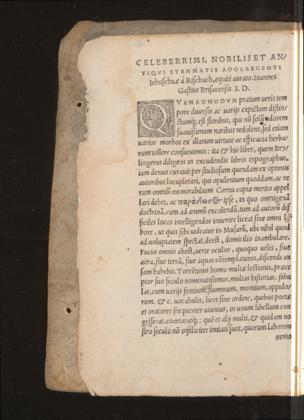 CELEBERRIMI, NOBILIS ET AN/
TIQVI STEMMATIS ADOLESCENTI
Iehoschuæ à Rischach, equiti aurato. Ioannes
Gastius Brisacensis S. D.
QVEMADMODVM pratum ueris tem
pore diuersis ac uarijs expictum distin/
ctumq́; est floribus, qui nõ solũ odorem
suauissimum naribus redolent, sed etiam
uarios morbos ex illarum uirtute ac efficacia herba/
rum tollere consueuimus: ita & hic liber, quem Bry/
lingerus diligens in excudendis libris typographus,
iam denuo curauit per studiosum quendam ex optimis
autoribus locupletari, qui opulentum quoddam, ac re
rum omniũ memorabilium Cornu copiæ merito appel
lari debet, & ipse, in quo contingenã
doctrinã, cum ad animũ excolendũ, tum ad autorũ dif
ficiles locos intelligendos inuenire licet: sine omni la
bore, ut quis sibi uideatur in Musarũ, ubi nihil quod
ad uoluptatem spectat, deest, domicilio inambulare.
Fucus omnis abest, uerte oculos, quoquo uelis, siue
aëra, siue terrã, siue aquas cõtemplaturus, discendi an
sam habebis. Torrētinus homo multæ lectionis, præce
ptor suo seculo nominatissimus, multas historias, fabu
las, cum uarijs fontium, fluminum, montium, oppido/
rum, &c. uocabulis, licet sine ordine, quibus poëtæ
et oratores frequenter utuntur, in unum libellum con
gesserat, quē et alij multi, & quidam no
stro seculo nō infeliciter imitati sunt, quorum laborem
nemo